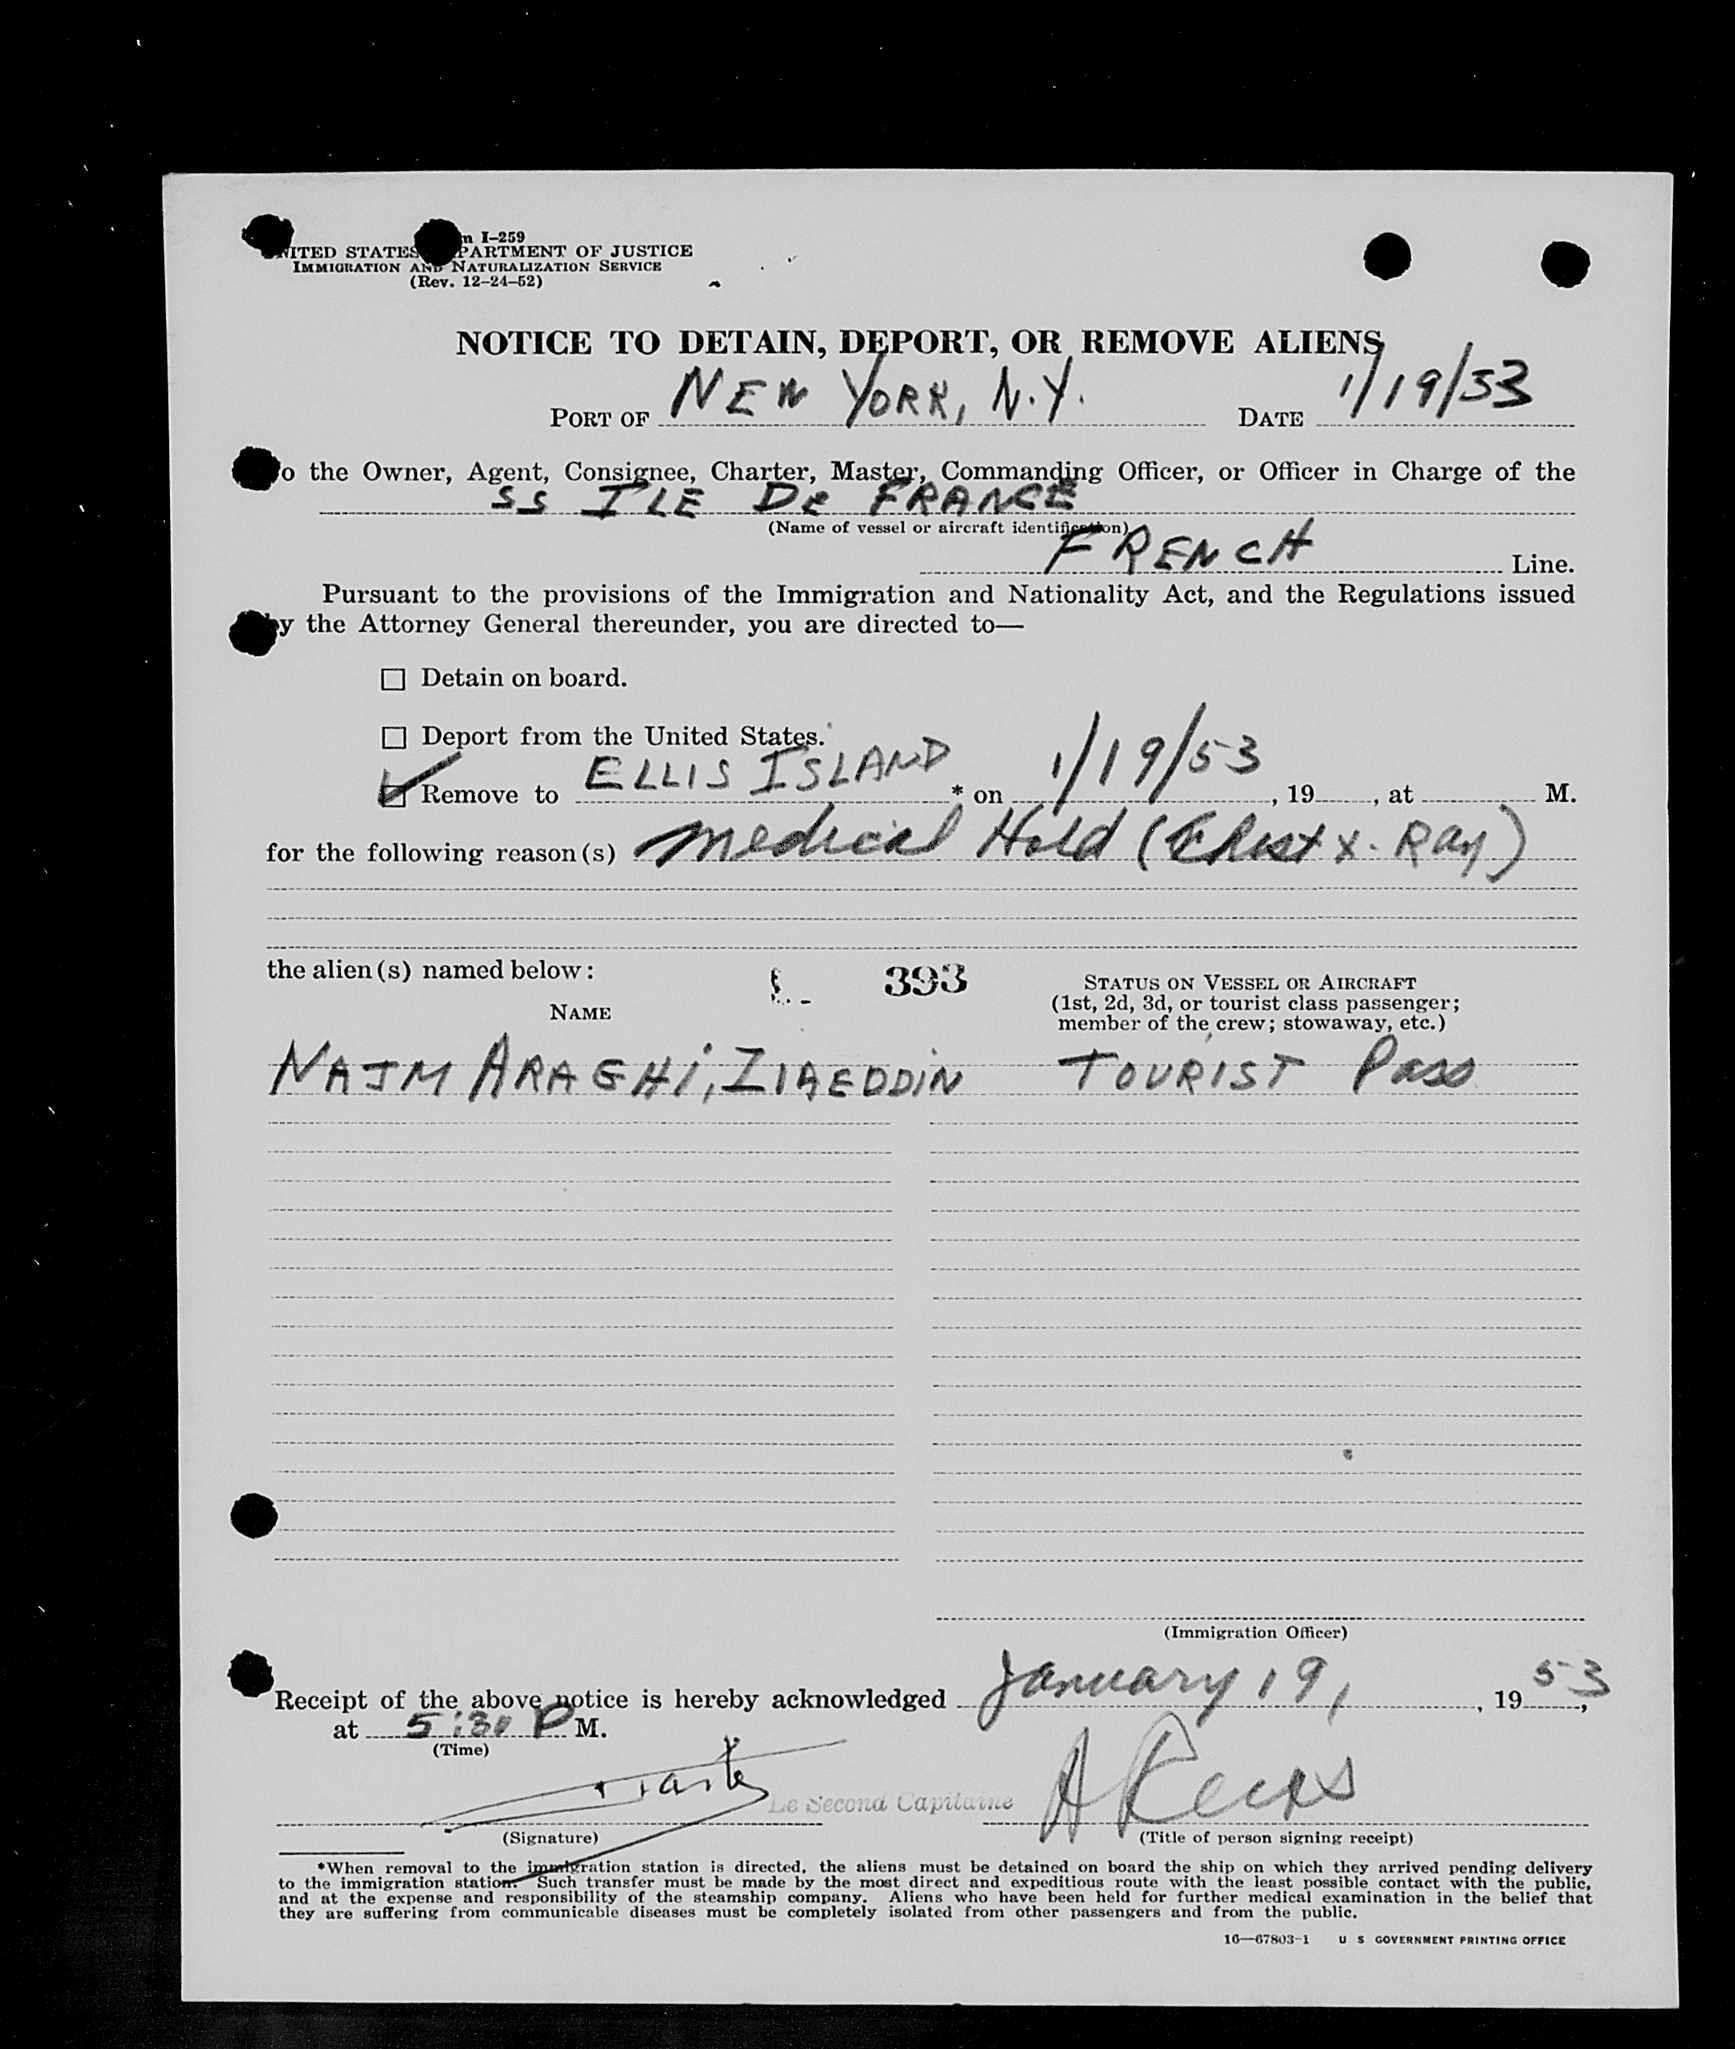 I-259
UNITED STATES DEPARTMENT OF JUSTICE
IMMIGRATION AND NATURALIZATION SERVICE
(Rev. 12-24-52)
NOTICE TO DETAIN, DEPORT, OR REMOVE ALIENS
PORT OF NEW YORK, N.Y. DATE 1/19/53
To the Owner, Agent, Consignee, Charter, Master, Commanding Officer, or Officer in Charge of the
SS ILE De FRANCE
(Name of vessel or aircraft identification)
FRENCH Line.
Pursuant to the provisions of the Immigration and Nationality Act, and the Regulations issued
by the Attorney General thereunder, you are directed to—
☐ Detain on board.
☐ Deport from the United States.
☑ Remove to ELLIS ISLAND * on 1/19/53, 19, at M.
for the following reason(s) Medical Hold (Chest X-Ray)
the alien(s) named below:
393
STATUS ON VESSEL OR AIRCRAFT
(1st, 2d, 3d, or tourist class passenger;
member of the crew; stowaway, etc.)
NAME
NAJM ARAGHI, ZIAEDDIN TOURIST Pass
(Immigration Officer)
Receipt of the above notice is hereby acknowledged January 19, , 19 53,
at 5:30 P M.
(Time)
Le Second Capitaine
(Signature) (Title of person signing receipt)
*When removal to the immigration station is directed, the aliens must be detained on board the ship on which they arrived pending delivery
to the immigration station. Such transfer must be made by the most direct and expeditious route with the least possible contact with the public,
and at the expense and responsibility of the steamship company. Aliens who have been held for further medical examination in the belief that
they are suffering from communicable diseases must be completely isolated from other passengers and from the public.
16—67803-1 U S GOVERNMENT PRINTING OFFICE